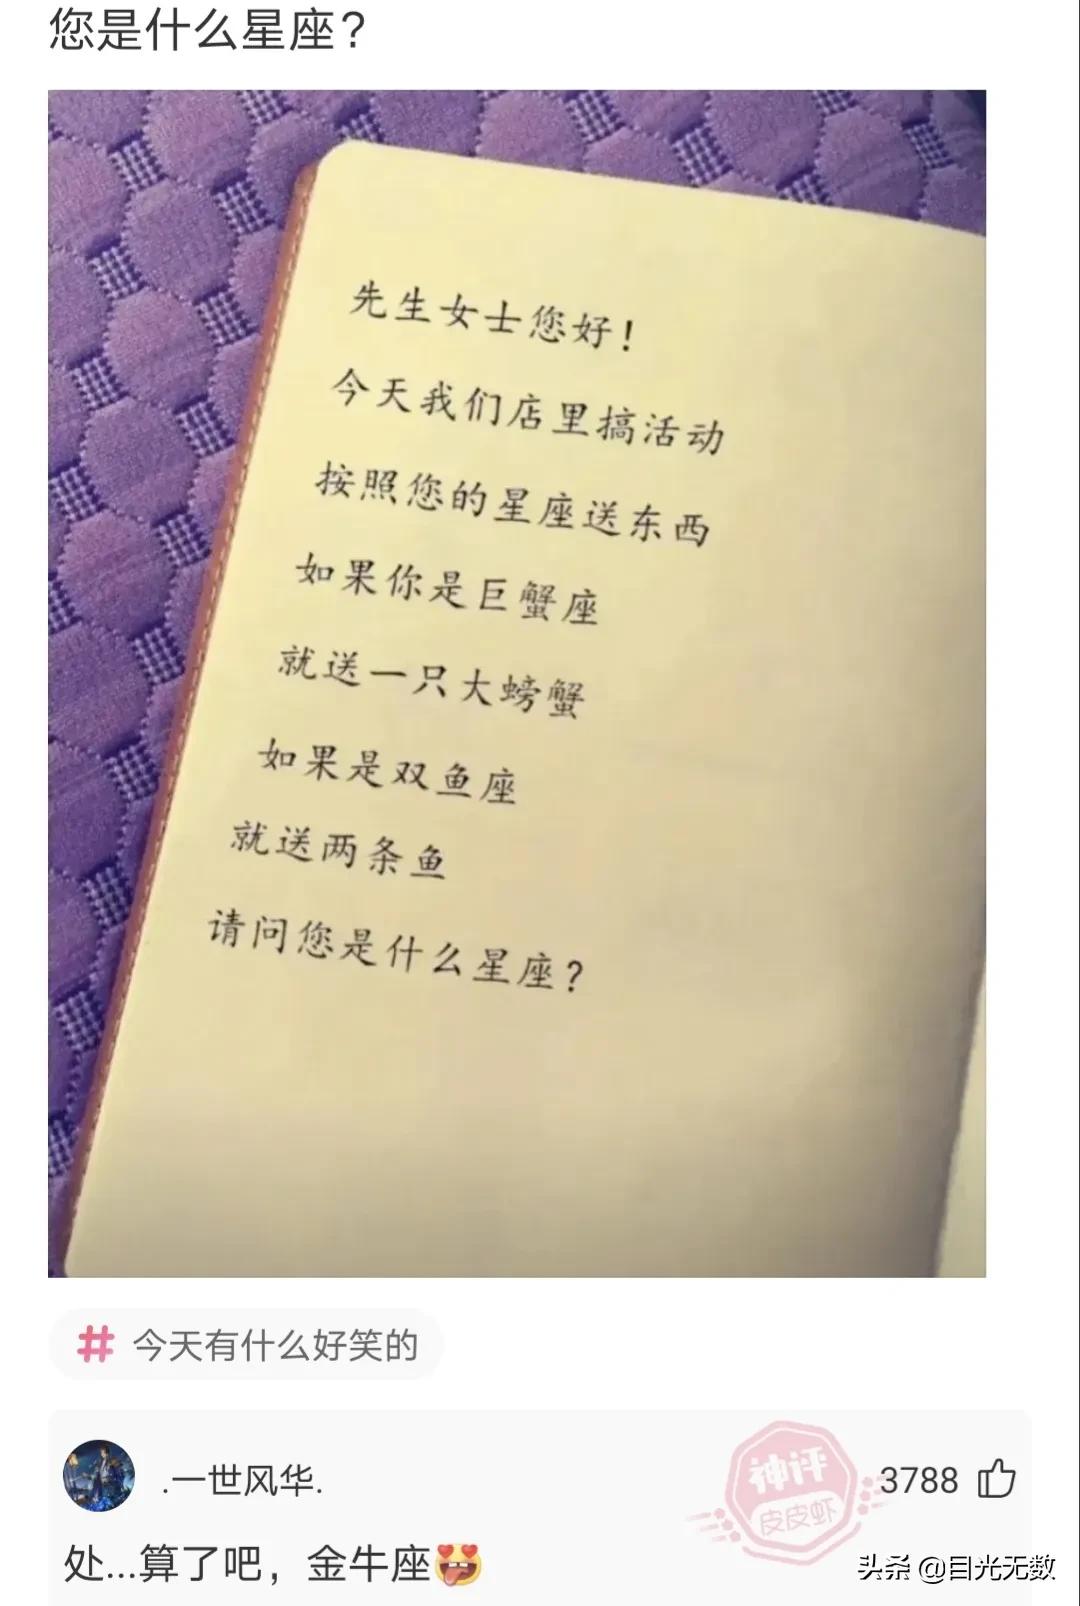 您是什么星座?
先生女士您好!
今天我们店里搞活动
按照您的星座送东西
如果你是巨蟹座
就送一只大螃蟹
如果是双鱼座
就送两条鱼
请问您是什么星座?
# 今天有什么好笑的
.一世风华.
神评
皮皮虾
3788
处...算了吧，金牛座
头条 @目光无数